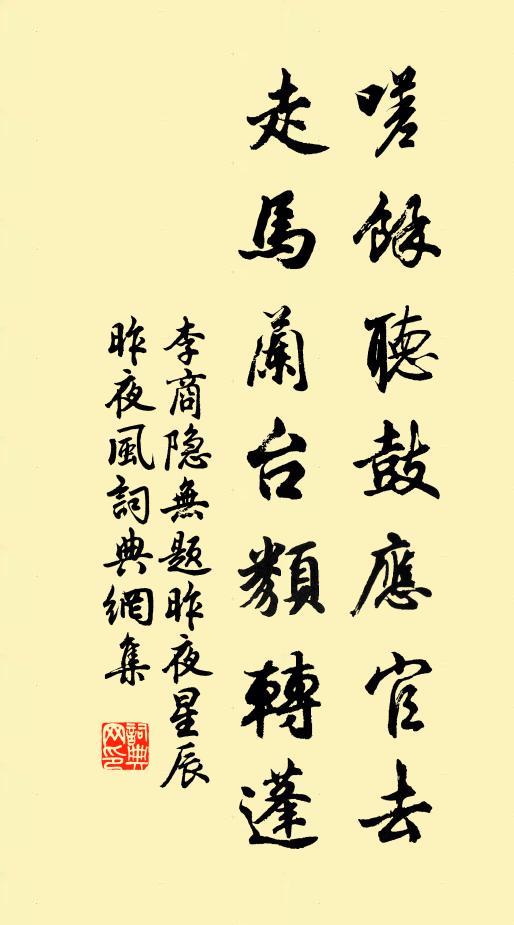 嗟餘聽鼓應官去
走馬蘭台類轉蓬
李商隐無題昨夜星辰
昨夜風詞典網集
詞典
网印